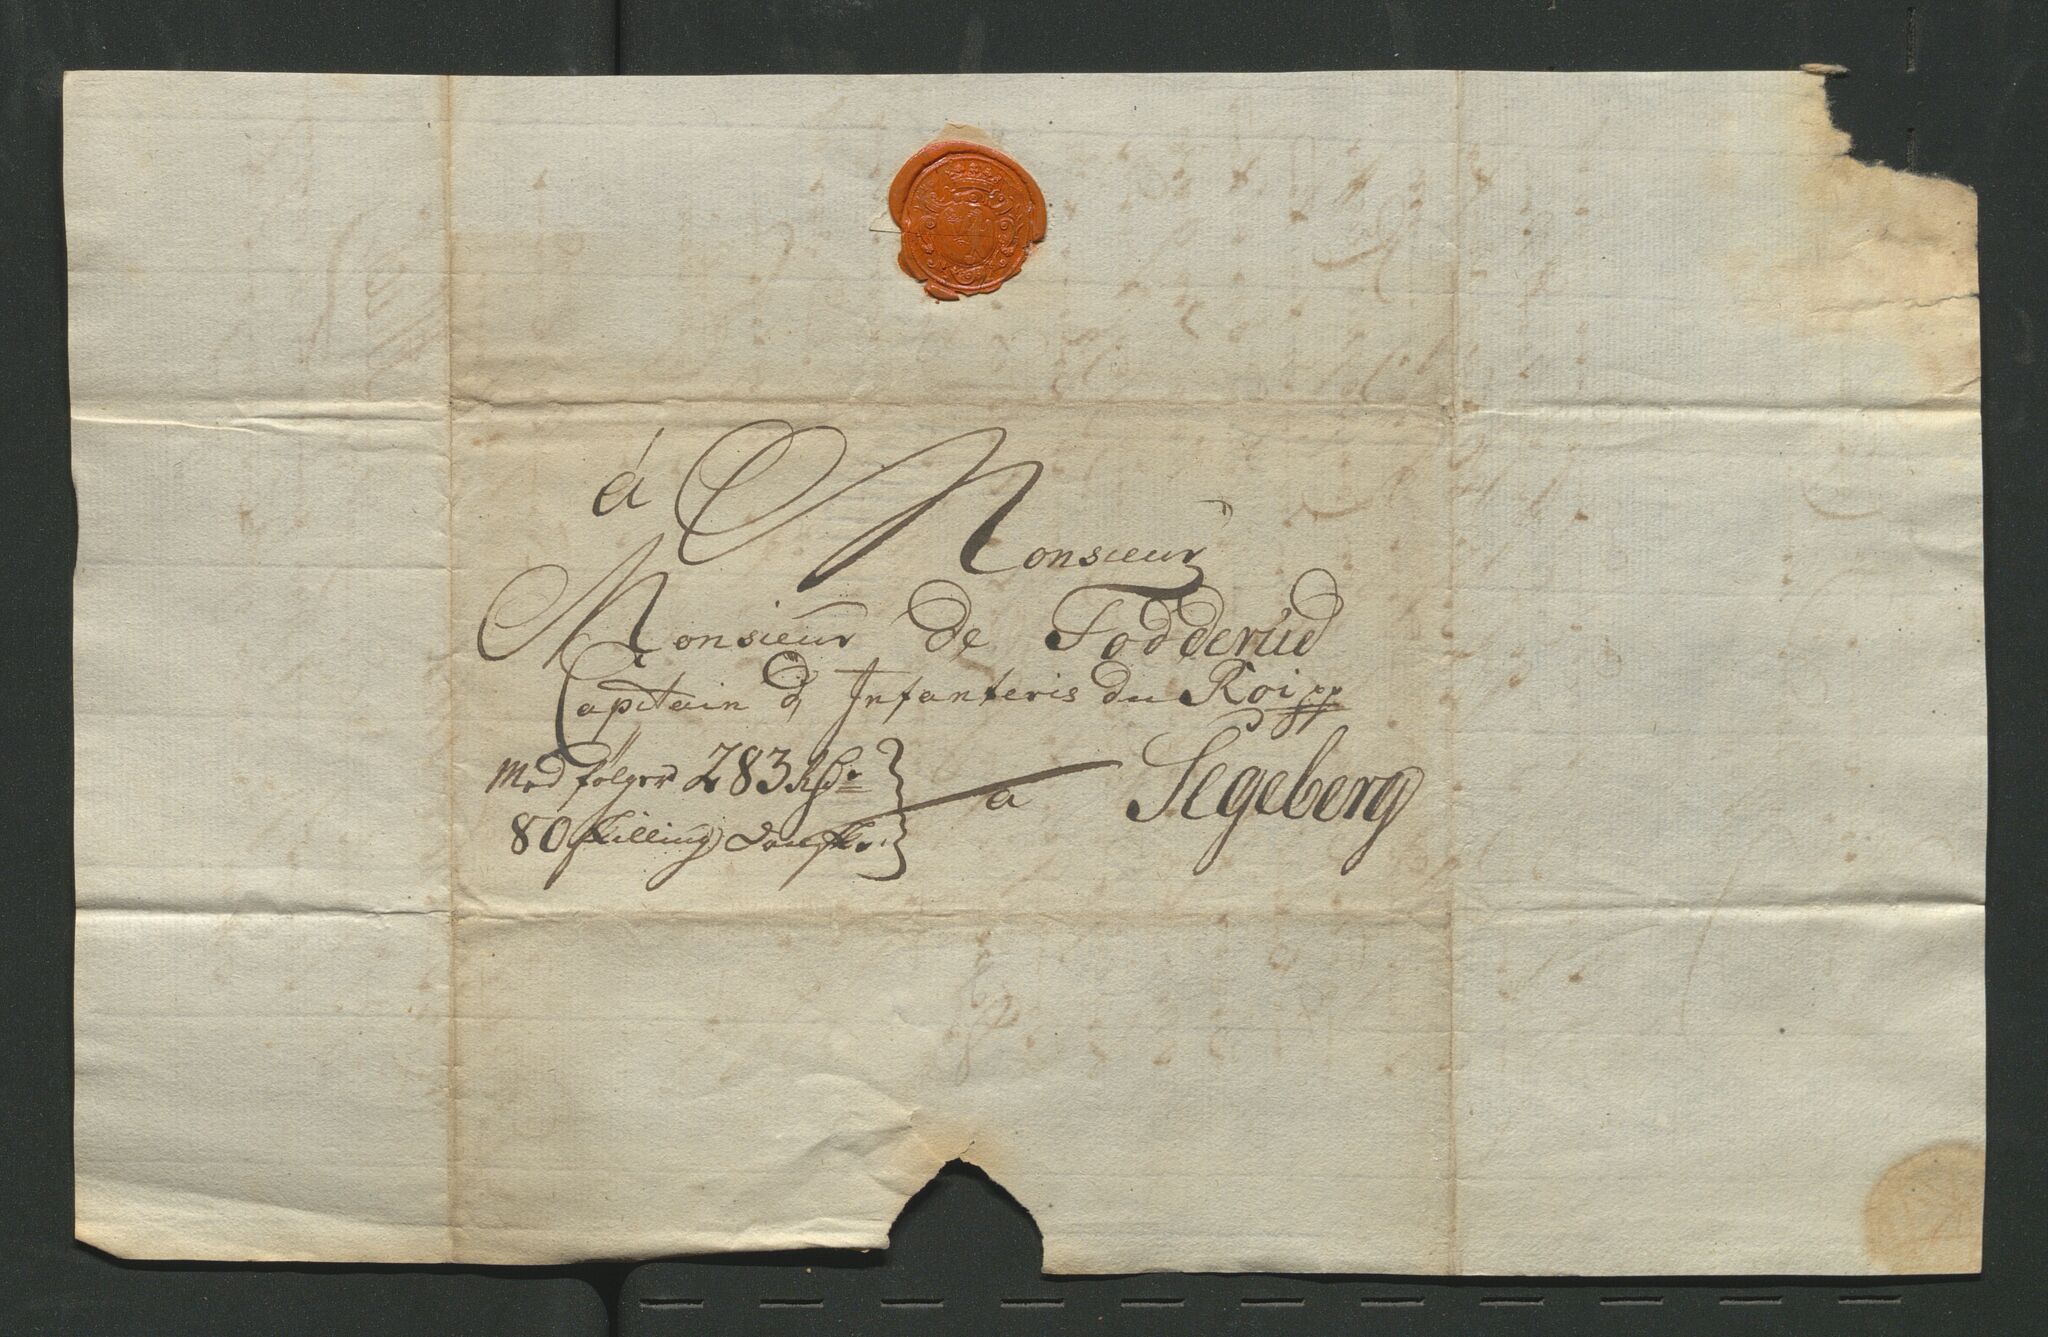 á Monsieur
Monsieur de Fodderud
Capitain d'Infanteris du Roi pp
Med følger 283 Rdr
80 skilling Danske.
a Segeberg